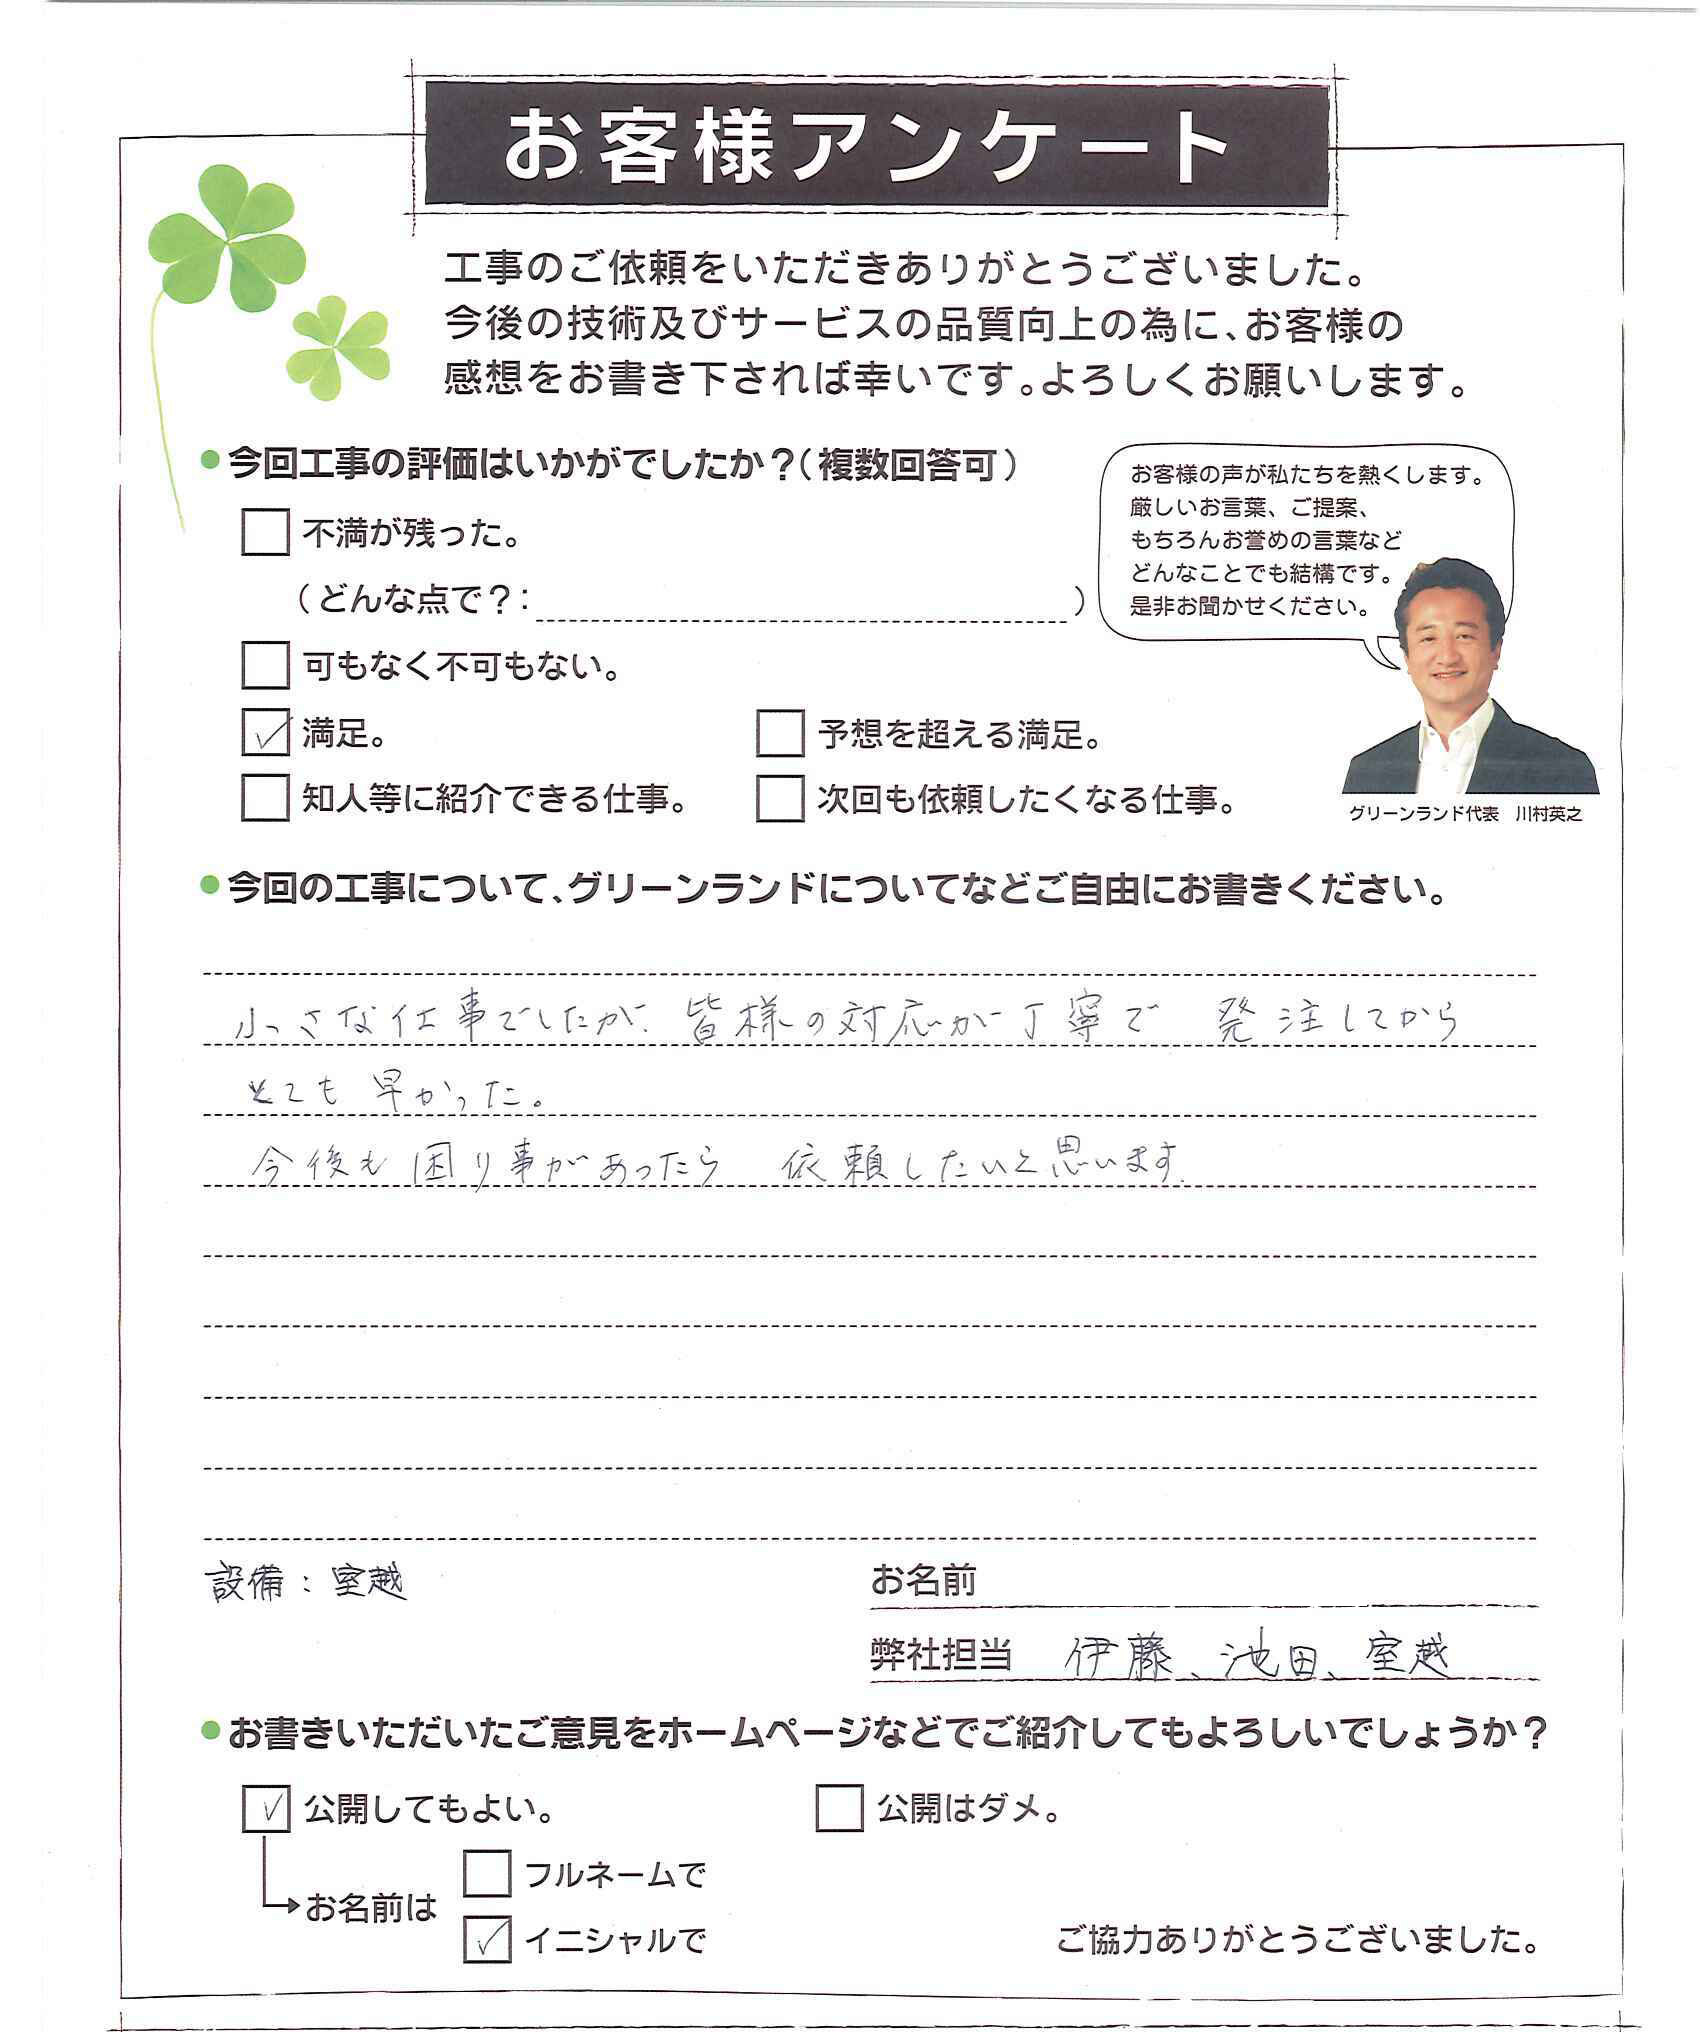 お客様アンケート
工事のご依頼をいただきありがとうございました。
今後の技術及びサービスの品質向上の為に、お客様の
感想をお書き下されば幸いです。よろしくお願いします。
●今回工事の評価はいかがでしたか？（複数回答可）
お客様の声が私たちを熱くします。
厳しいお言葉、ご提案、
もちろんお誉めの言葉など
どんなことでも結構です。
是非お聞かせください。
不満が残った。
（どんな点で？：　）
可もなく不可もない。
✓ 満足。
予想を超える満足。
知人等に紹介できる仕事。
次回も依頼したくなる仕事。
グリーンランド代表　川村英之
●今回の工事について、グリーンランドについてなどご自由にお書きください。
小さな仕事でしたが、皆様の対応が丁寧で　発注してから
とても早かった。
今後も困り事があったら　依頼したいと思います.
設備：室越
お名前
弊社担当　伊藤、池田、室越
●お書きいただいたご意見をホームページなどでご紹介してもよろしいでしょうか？
✓ 公開してもよい。
公開はダメ。
お名前は
フルネームで
✓ イニシャルで
ご協力ありがとうございました。